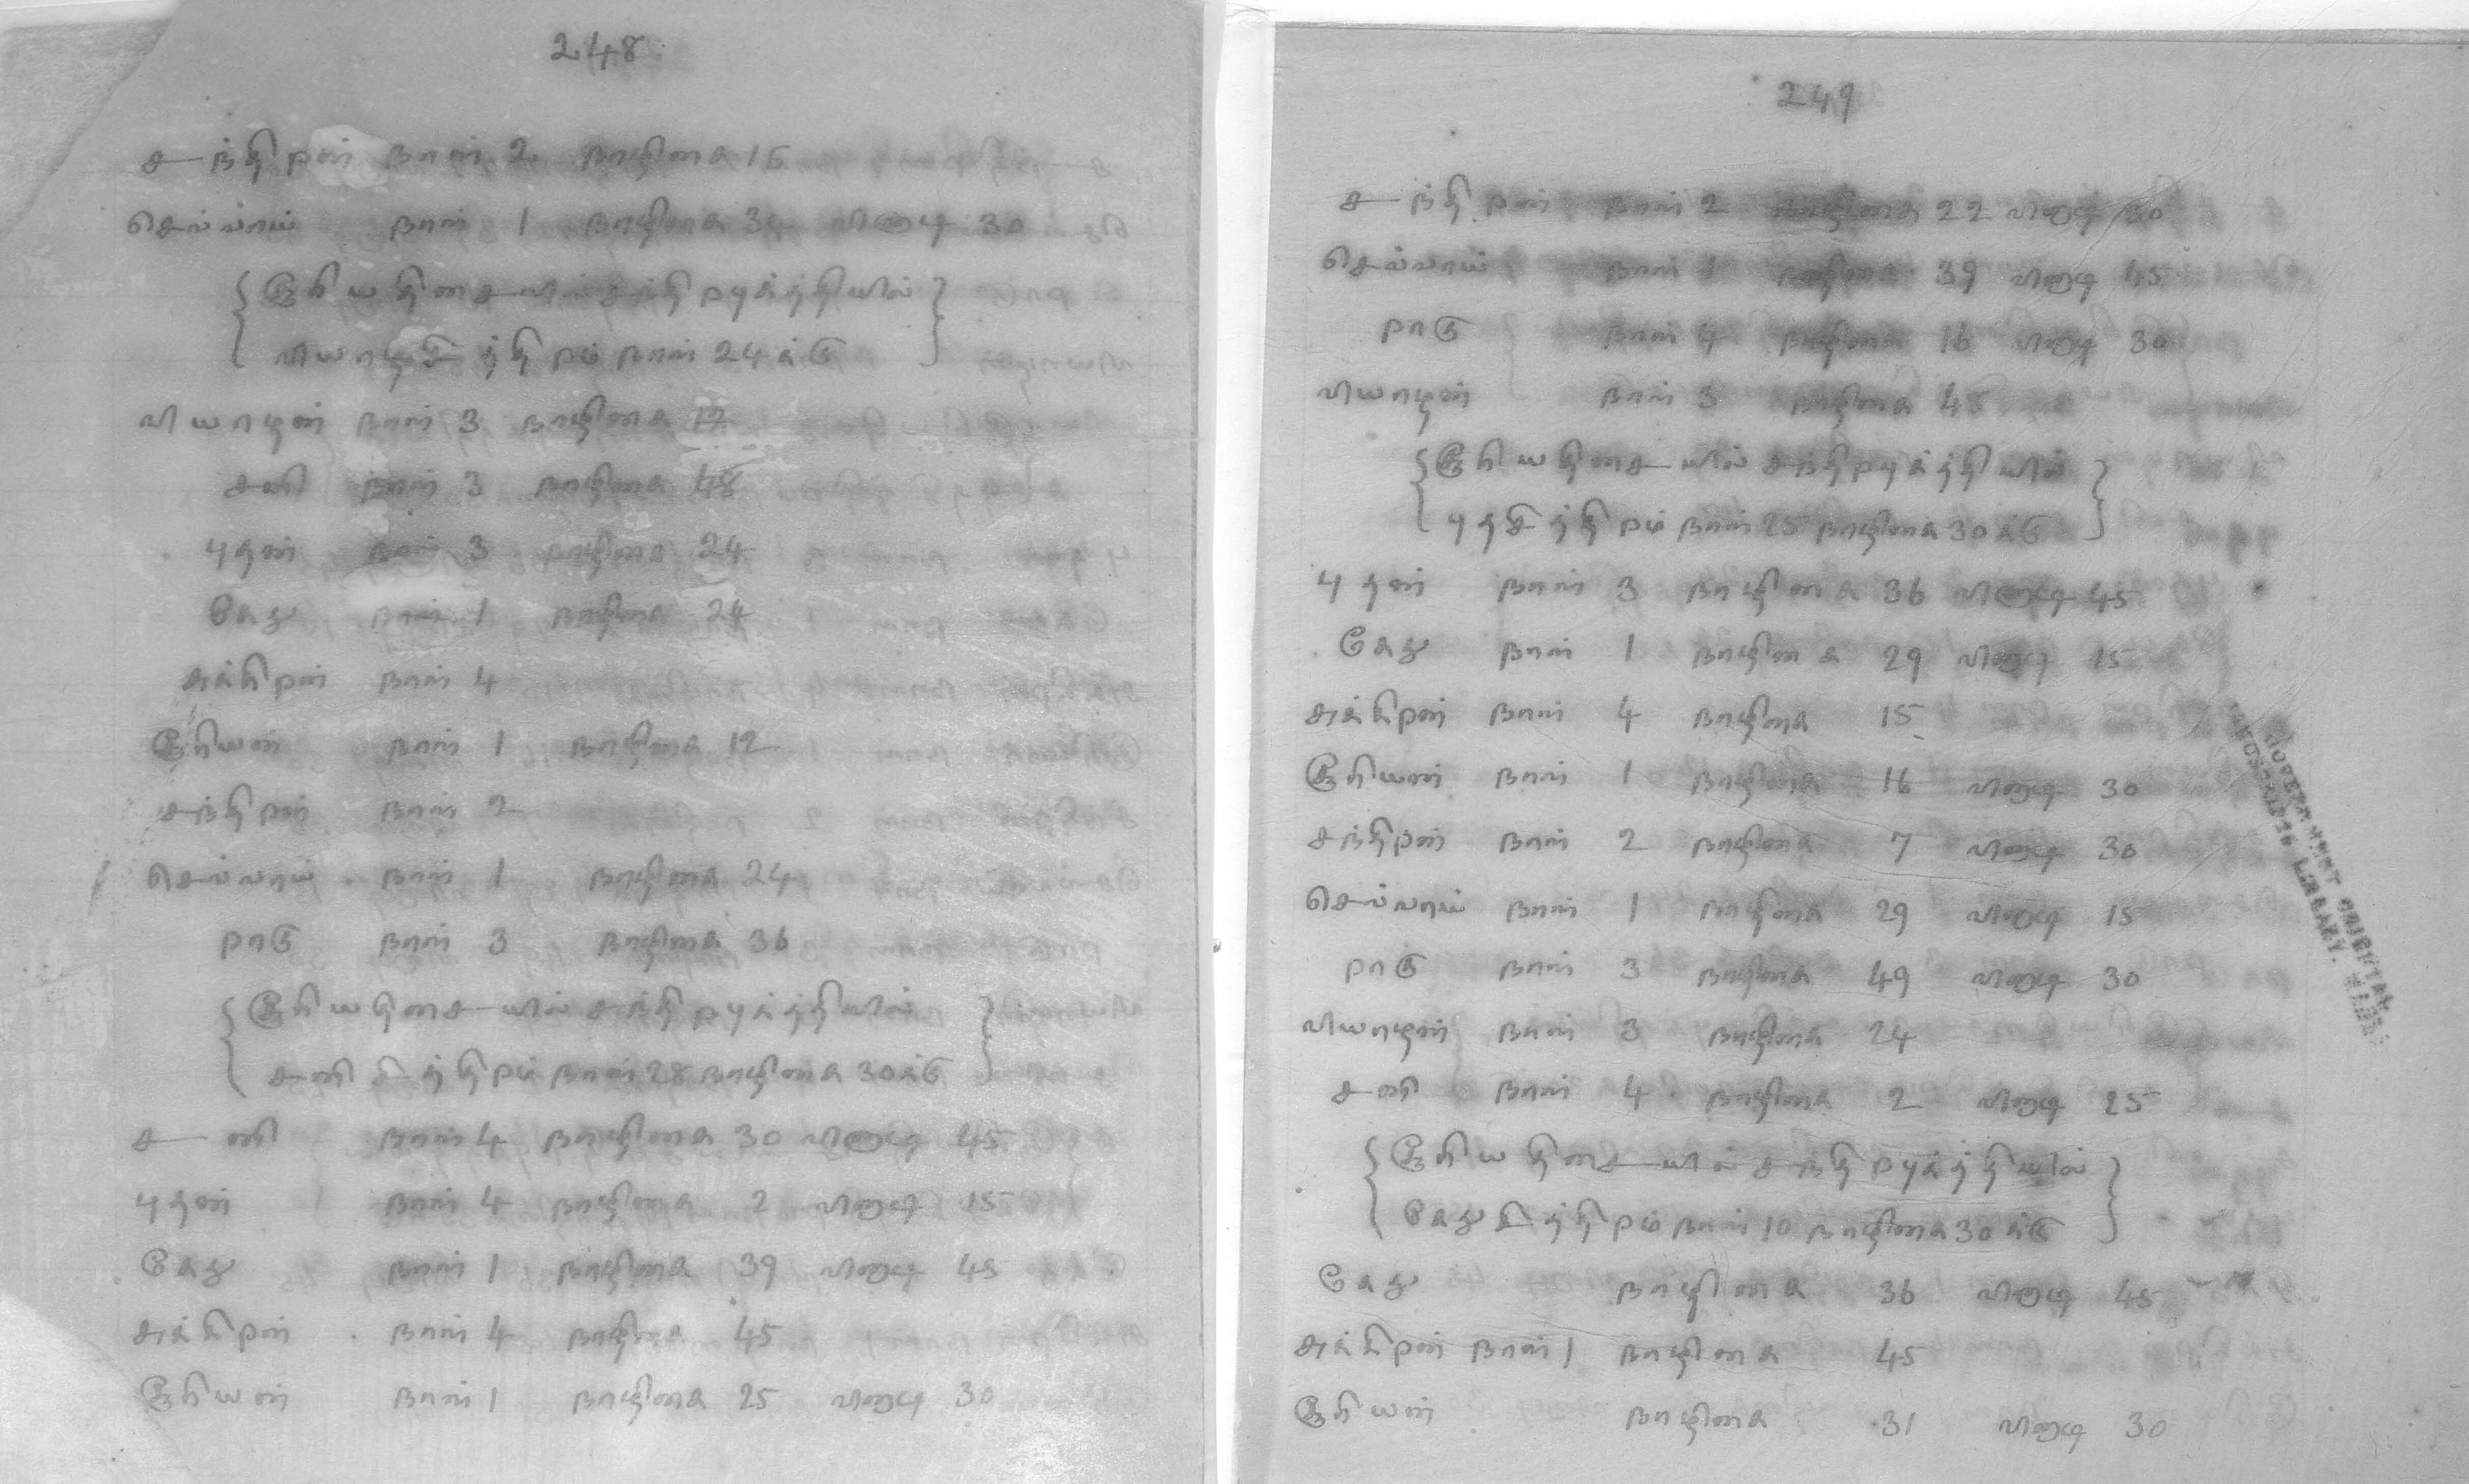 248
சந்திரன் நாள் 2 நாழிகை 15
செவ்வாய் நாள் 1 நாழிகை 34 விநாடி 30
{ சூரிய திசையில் சந்திர புத்தியில்
வியாழச் சித்திரம் நாள் 24 க்கு }
வியாழன் நாள் 3 நாழிகை 12
சனி நாள் 3 நாழிகை 48
புதன் நாள் 3 நாழிகை 24
கேது நாள் 1 நாழிகை 24
சுக்கிரன் நாள் 4
சூரியன் நாள் 1 நாழிகை 12
சந்திரன் நாள் 2
செவ்வாய் நாள் 1 நாழிகை 24
ராகு நாள் 3 நாழிகை 36
{ சூரிய திசையில் சந்திர புத்தியில்
சனி சித்திரம் நாள் 28 நாழிகை 30 க்கு }
சனி நாள் 4 நாழிகை 30 விநாடி 45
புதன் நாள் 4 நாழிகை 2 விநாடி 15
கேது நாள் 1 நாழிகை 39 விநாடி 45
சுக்கிரன் நாள் 4 நாழிகை 45
சூரியன் நாள் 1 நாழிகை 25 விநாடி 30
249
சந்திரன் நாள் 2 நாழிகை 22 விநாடி 30
செவ்வாய் நாள் 1 நாழிகை 39 விநாடி 45
ராகு நாள் 4 நாழிகை 16 விநாடி 30
வியாழன் நாள் 3 நாழிகை 48
{ சூரிய திசையில் சந்திர புத்தியில்
புதச் சித்திரம் நாள் 25 நாழிகை 30 க்கு }
புதன் நாள் 3 நாழிகை 36 விநாடி 45
கேது நாள் 1 நாழிகை 29 விநாடி 15
சுக்கிரன் நாள் 4 நாழிகை 15
சூரியன் நாள் 1 நாழிகை 16 விநாடி 30
சந்திரன் நாள் 2 நாழிகை 7 விநாடி 30
செவ்வாய் நாள் 1 நாழிகை 29 விநாடி 15
ராகு நாள் 3 நாழிகை 49 விநாடி 30
வியாழன் நாள் 3 நாழிகை 24
சனி நாள் 4 நாழிகை 2 விநாடி 25
{ சூரிய திசையில் சந்திர புத்தியில்
கேது சித்திரம் நாள் 10 நாழிகை 30 க்கு }
கேது நாழிகை 36 விநாடி 45
சுக்கிரன் நாள் 1 நாழிகை 45
சூரியன் நாழிகை 31 விநாடி 30
GOVERNMENT ORIENTAL
MANUSCRIPTS LIBRARY.